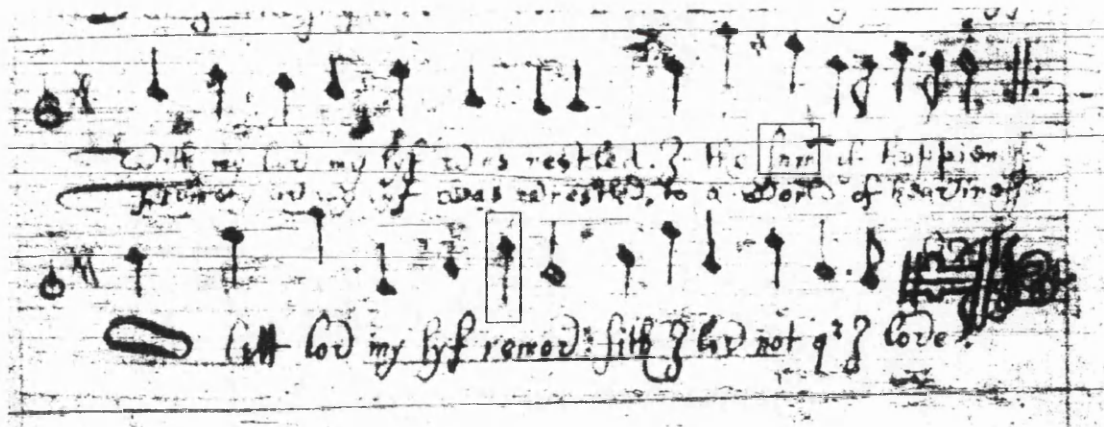 With my lov my lyf was nestled. & the sum of happines
from my lov my lyf was wrestled, to a World of heavines
Lett lov my lyf remov: sith I lov not qr I love.